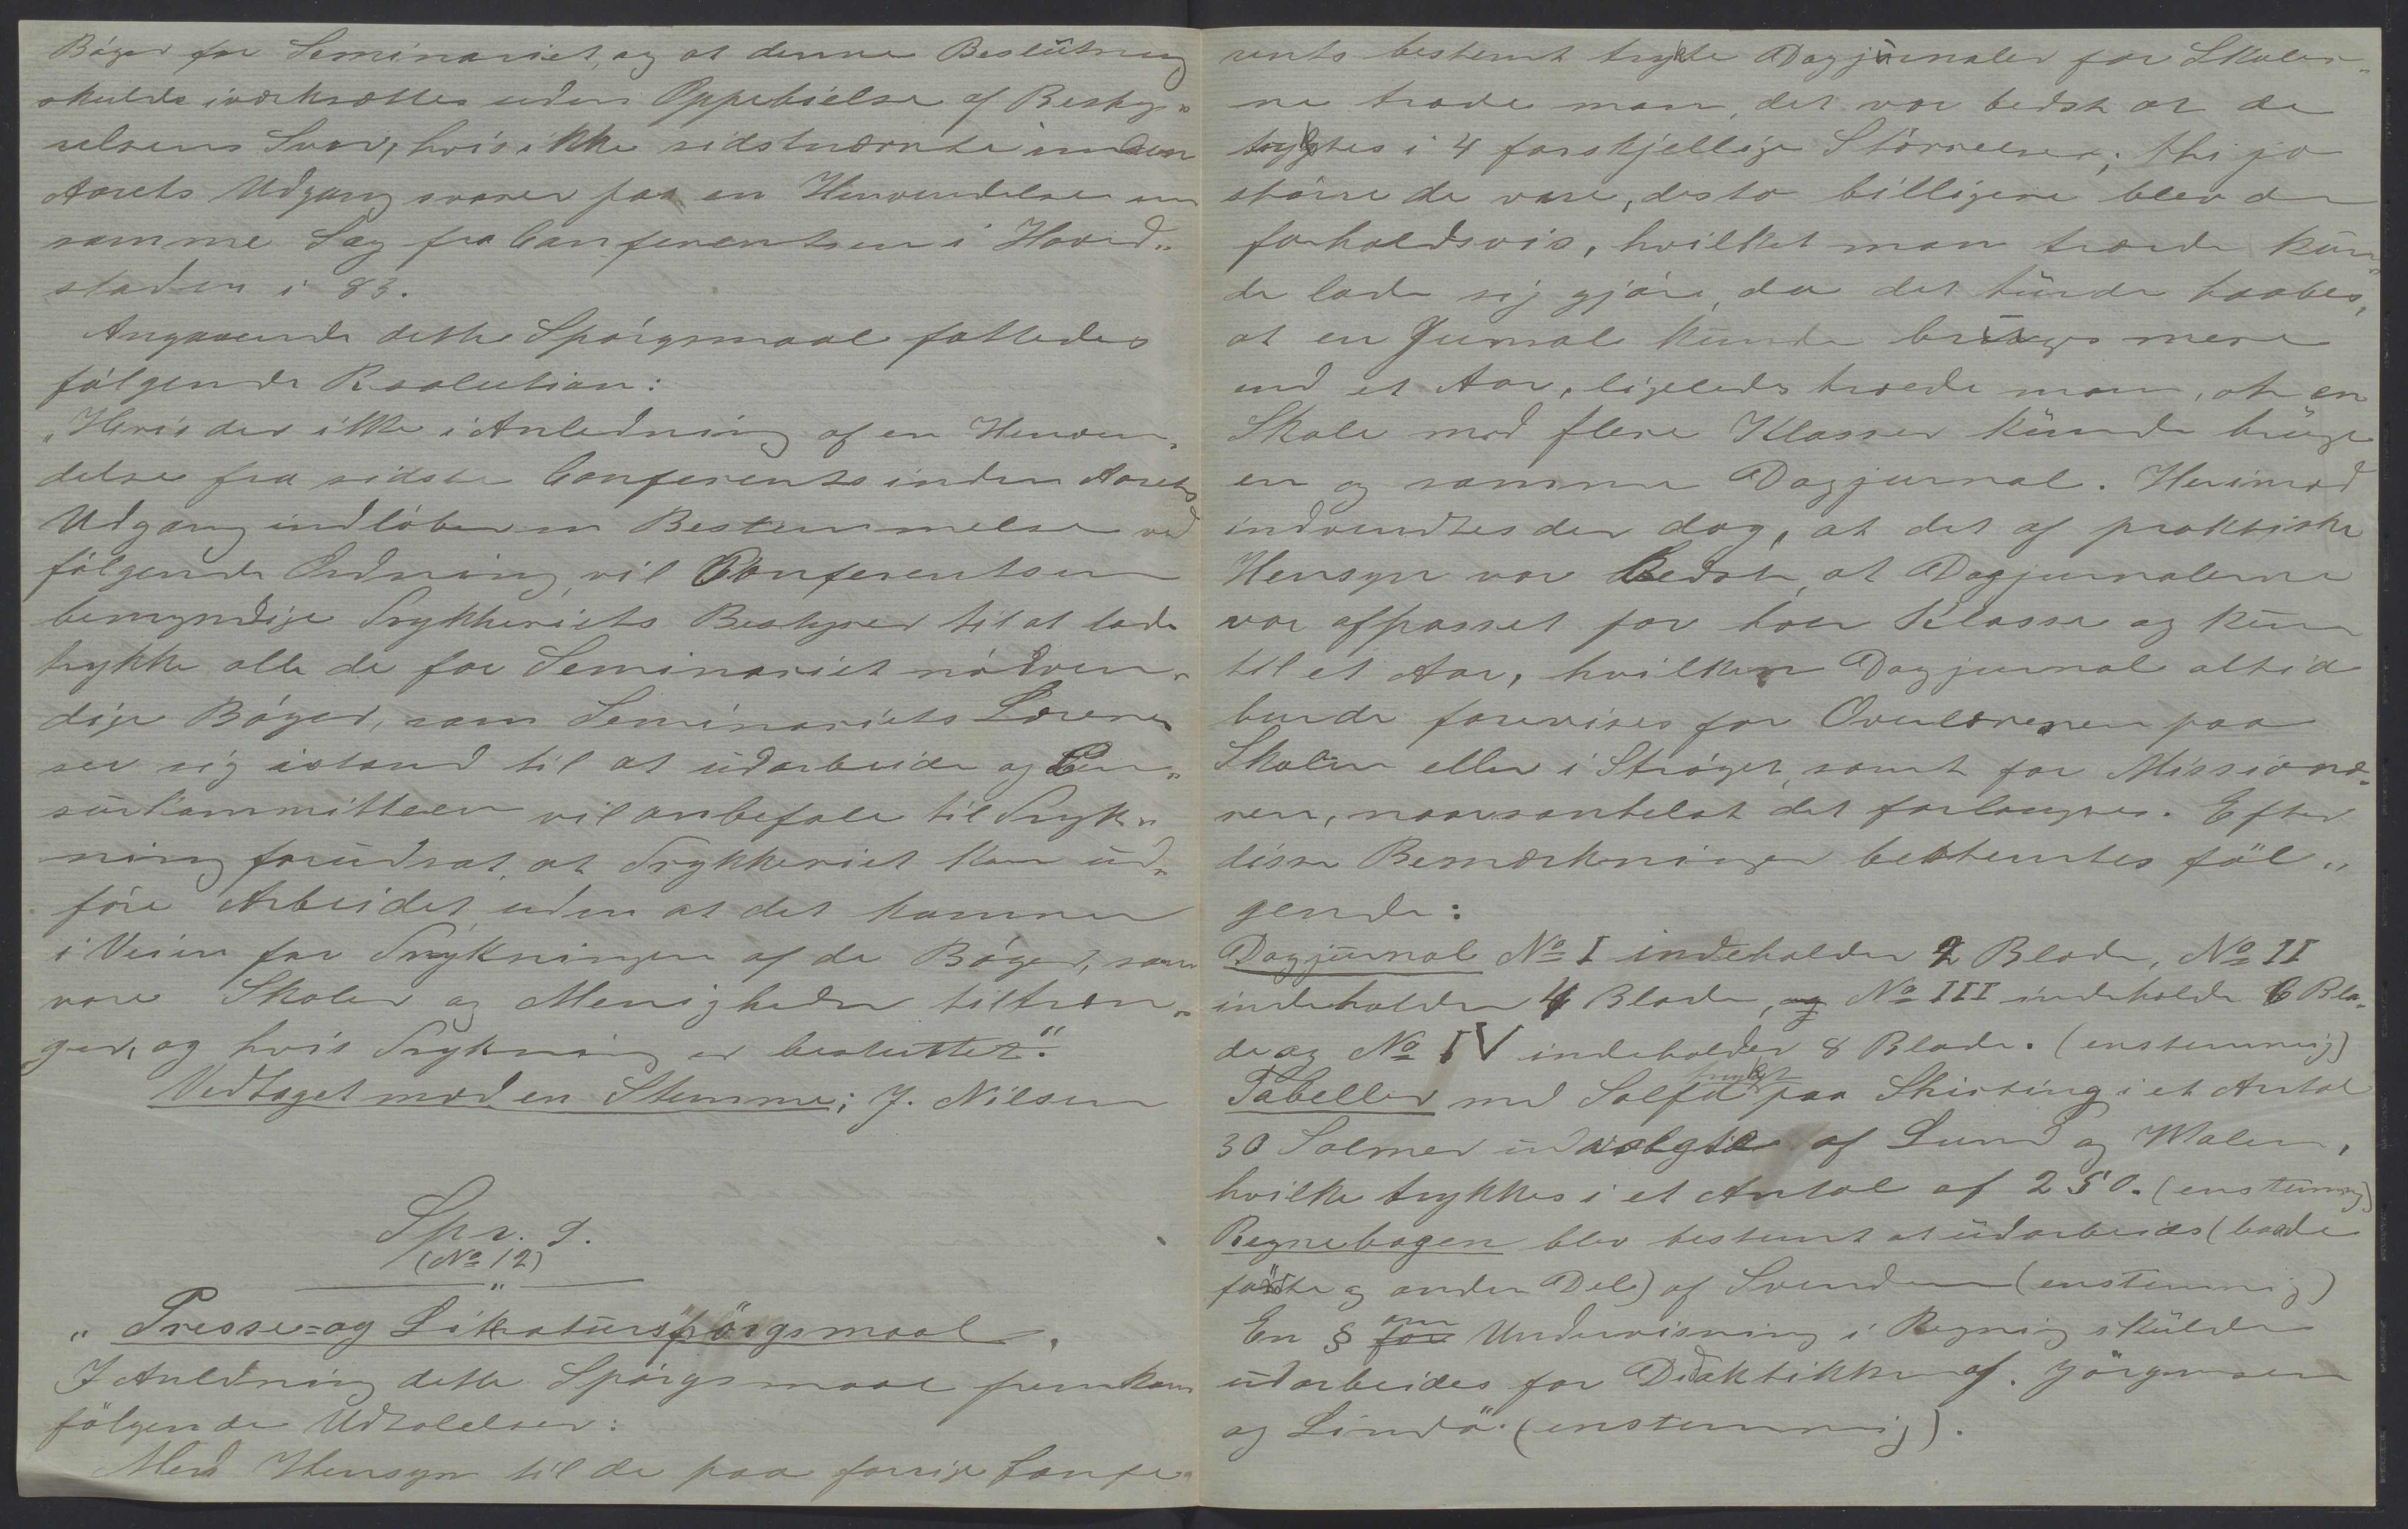 Bøger for Seminariet, og at denne Beslutning
skulde iværksættes uden Oppebielse af Besty„
relsens Svar, hvis ikke sidstnævnte inden
Aarets Udgang svarer paa en Henvendelse om
samme Sag fra Conferentsen i Hoved„
staden i 83.
Angaaende dette Spørgsmaal fattedes
følgende Resolution:
„Hvis der ikke i Anledning af en Henven„
delse fra sidste Conferents inden Aarets
Udgang indløber en Bestemmelse ved
følgende Ordning, vil Conferentsen
bemyndige Trykkeriets Bestyrer til at lade
trykke alle de for Seminariet nødven„
dige Bøger, som Seminariets Lærere
ser sig istand til at udarbeide og Cen„
surkommitteen vil anbefale til Tryk„
ning forudsat, at Trykkeriet kan ud„
føre Arbeidet, uden at det kommer
i Veien for Trykningen af de Bøger, som
vore Skoler og Menigheder tiltræn„
ger, og hvis Trykning er besluttet".
Vedtaget mod en Stemme; J. Nilsen
Spr. 9.
(No 12)
„Presse= og Litteraturspørgsmaal.
I Anledning dette Spørgsmaal fremkom
følgende Udtalelser:
Med Hensyn til de paa forrige Confe„
rents bestemt trykte Dagjurnaler for Skoler„
ne troede man, det var bedst at de
tryktes i 4 forskjellige Størrelser; thi jo
større de vare, desto billigere blev de
forholdsvis, hvilket man troede kun„
de lade sig gjøre, da det turde haabes,
at en Jurnal kunde bruges mere
end et Aar, ligeledes troede man, at en
Skole med flere Klasser kunde bruge
en og samme Dagjurnal. Herimod
indvendtes der dog, at det af praktiske
Hensyn var bedst, at Dagjurnalerne
var afpasset for hver Klasse og kun
til et Aar, hvilken Dagjurnal altid
burde forevises for Overlæreren paa
Skolen eller i Strøget, samt for Missionæ„
ren, naarsomhelst det forlanges. Efter
disse Bemærkninger bestemtes føl„
gende:
Dagjurnal No I indeholder 2 Blade, No II
indeholder 4 Blade, og No III indeholde 6 Bla„
de og No IV indeholder 8 Blade. (enstemmig)
Tabeller med Solfa trykt paa Shirting i et Antal
30 Salmer udvalgte af Lund og Walen,
hvilke trykkes i et Antal af 250. (enstemmig)
Regnebogen blev bestemt at udarbeides (baade
første og anden Del) af Svendsen (enstemmig)
En § for om Undervisning i Regning skulde
udarbeides for Didaktikken af Jørgensen
og Lindø. (enstemmig).